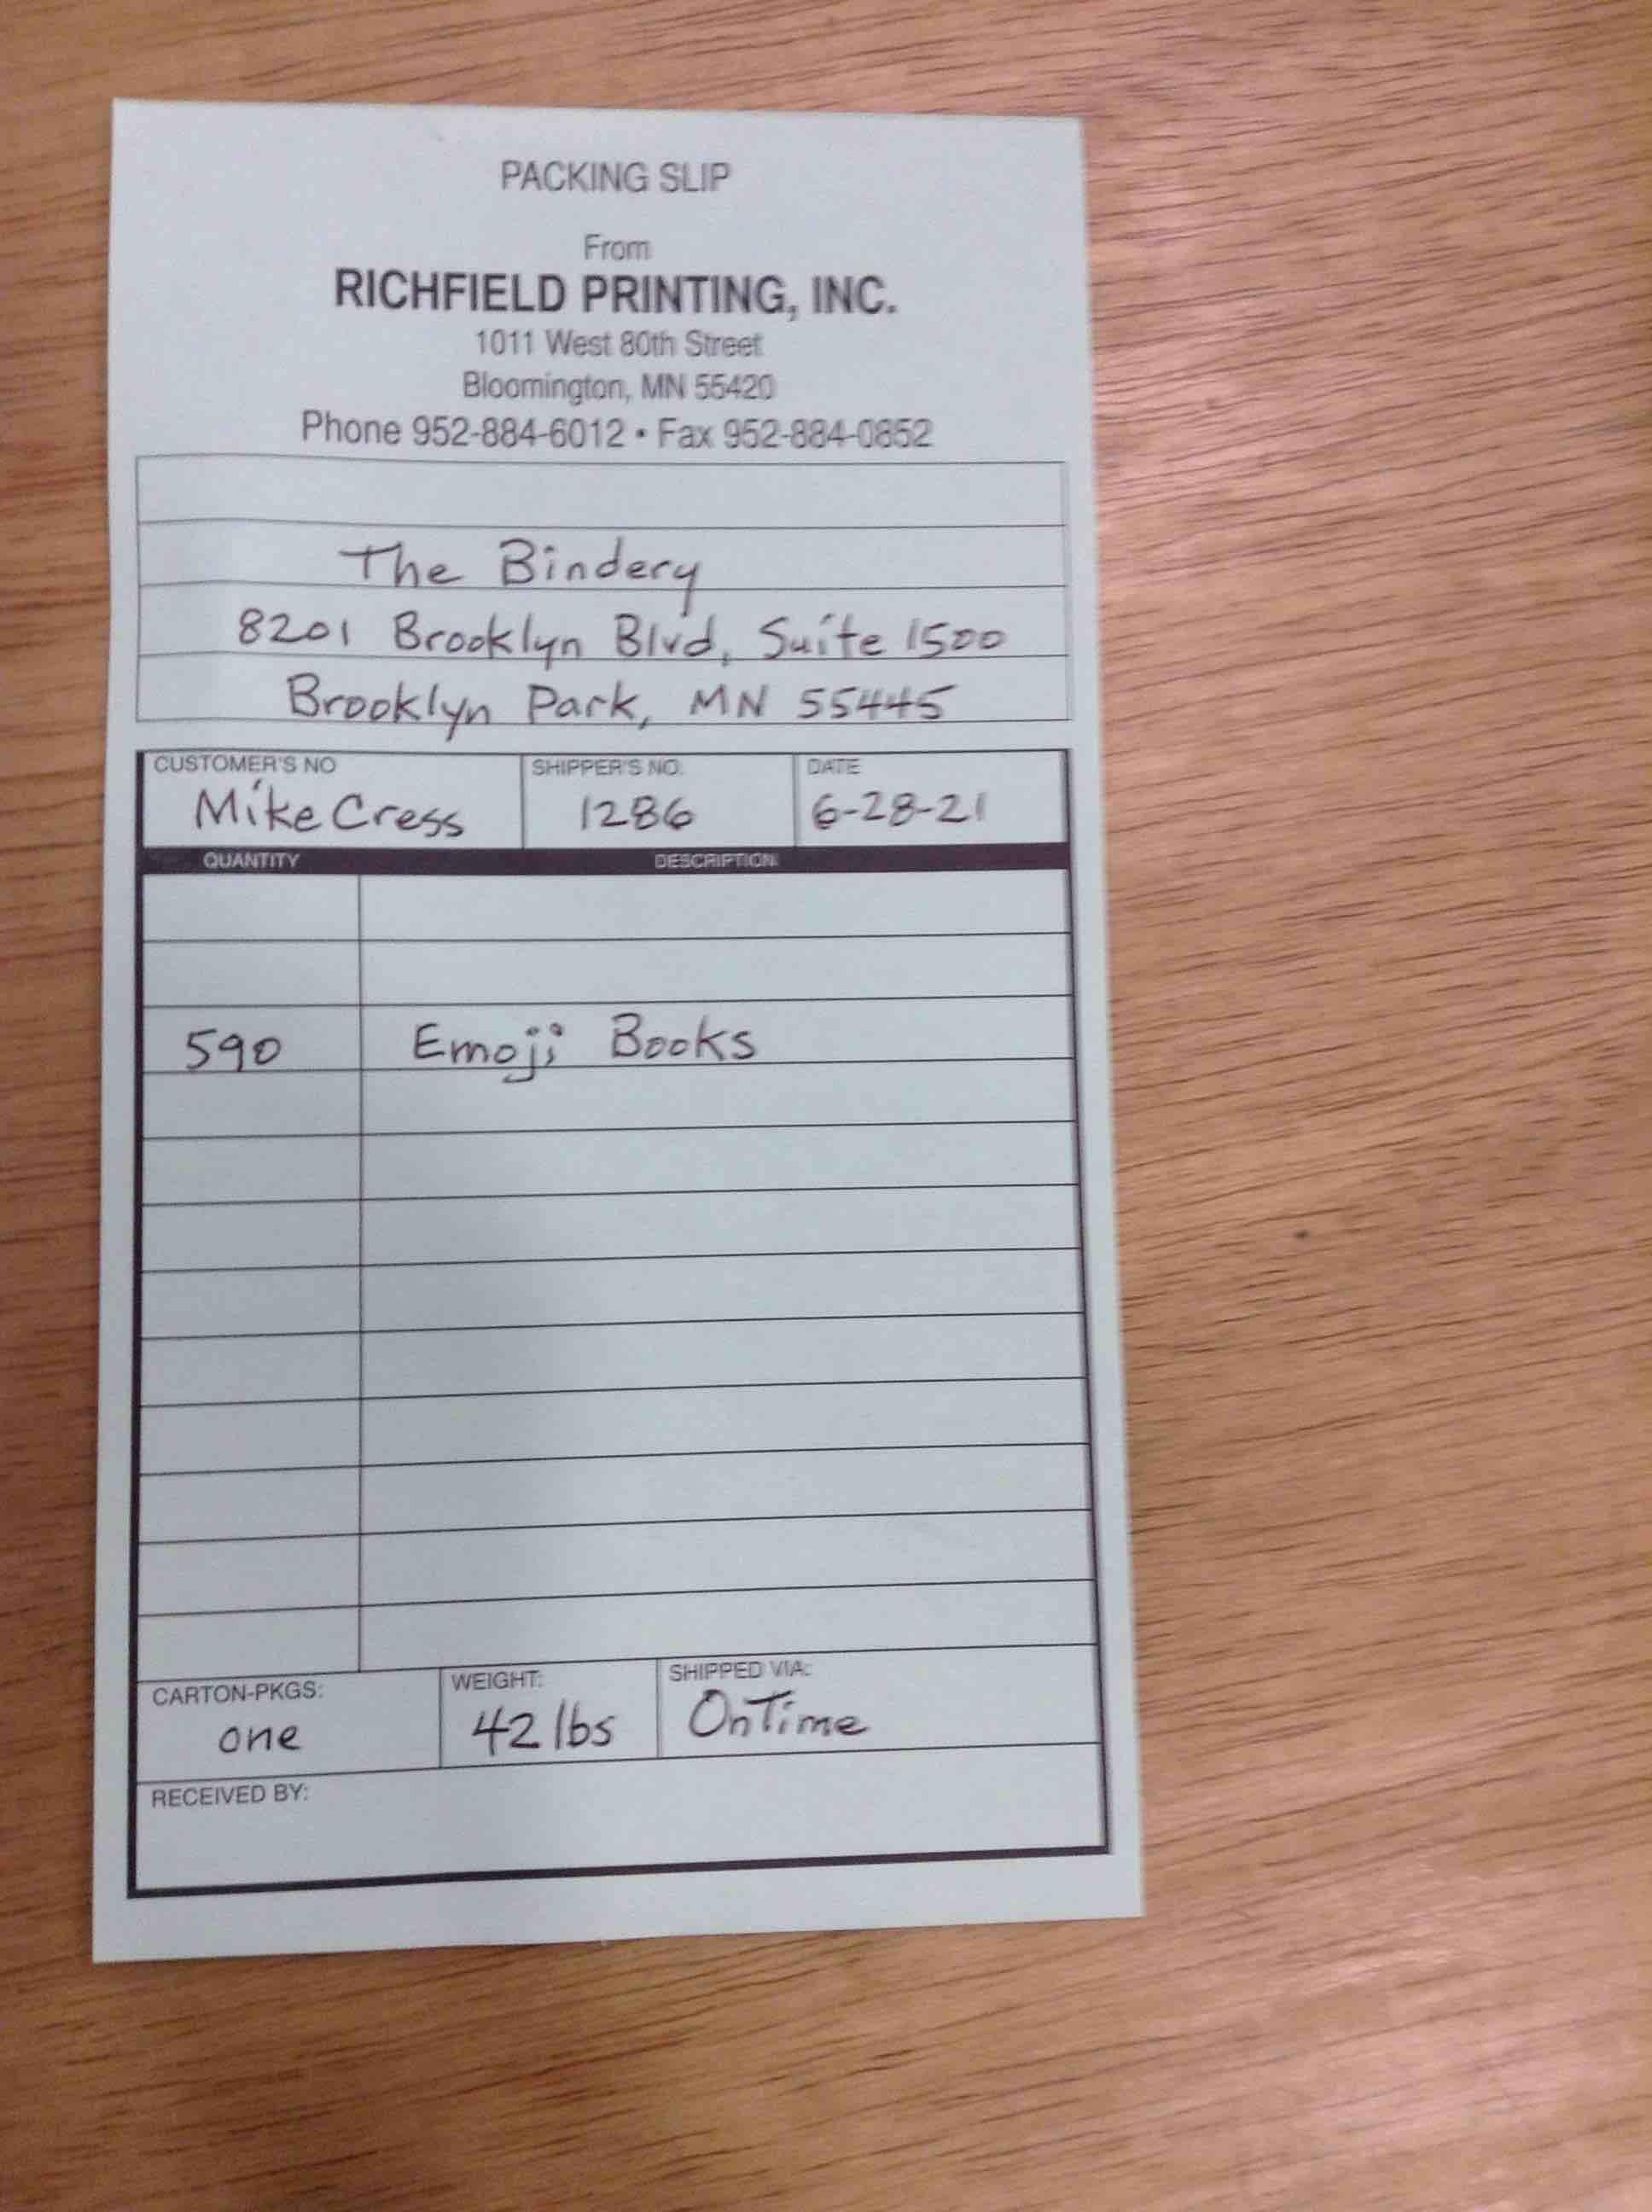 PACKING SLIP
From
RICHFIELD PRINTING, INC.
1011 West 80th Street
Bloomington, MN 55420
Phone 952-884-6012 • Fax 952-884-0852
The Bindery
8201 Brooklyn Blvd, Suite 1500
Brooklyn Park, MN 55445
CUSTOMER'S NO SHIPPER'S NO. DATE
Mike Cress 1286 6-28-21
QUANTITY DESCRIPTION
590 Emoji Books
CARTON-PKGS: WEIGHT: SHIPPED VIA:
one 42 lbs OnTime
RECEIVED BY: